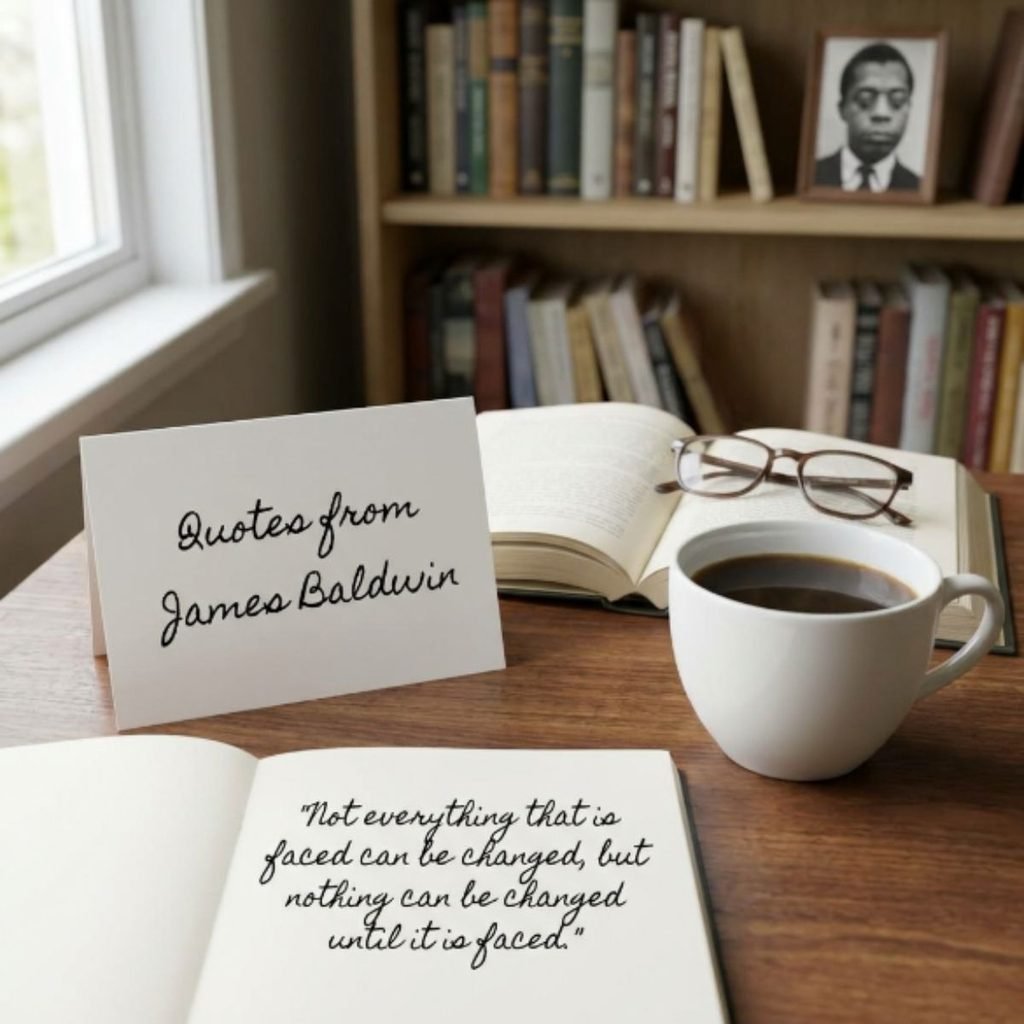 Quotes from
James Baldwin
"Not everything that is
faced can be changed, but
nothing can be changed
until it is faced."